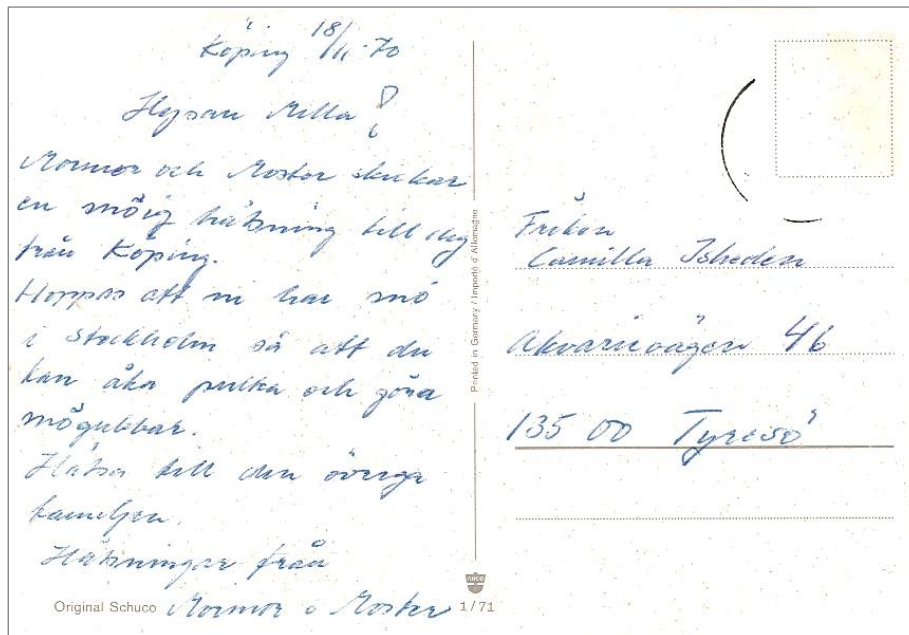 Köping 18/11-70
Hejsan Milla!
Mormor och Moster skickar
en snöig hälsning till dig
från Köping.
Hoppas att ni har snö
i Stockholm så att du
kan åka pulka och göra
snögubbar.
Hälsa till den övriga
familjen.
Hälsningar från
Mormor o Moster
Original Schuco
1/71
Printed in Germany / Importé d'Allemagne
Fröken
Camilla Isheden
Akvarievägen 46
135 00 Tyresö